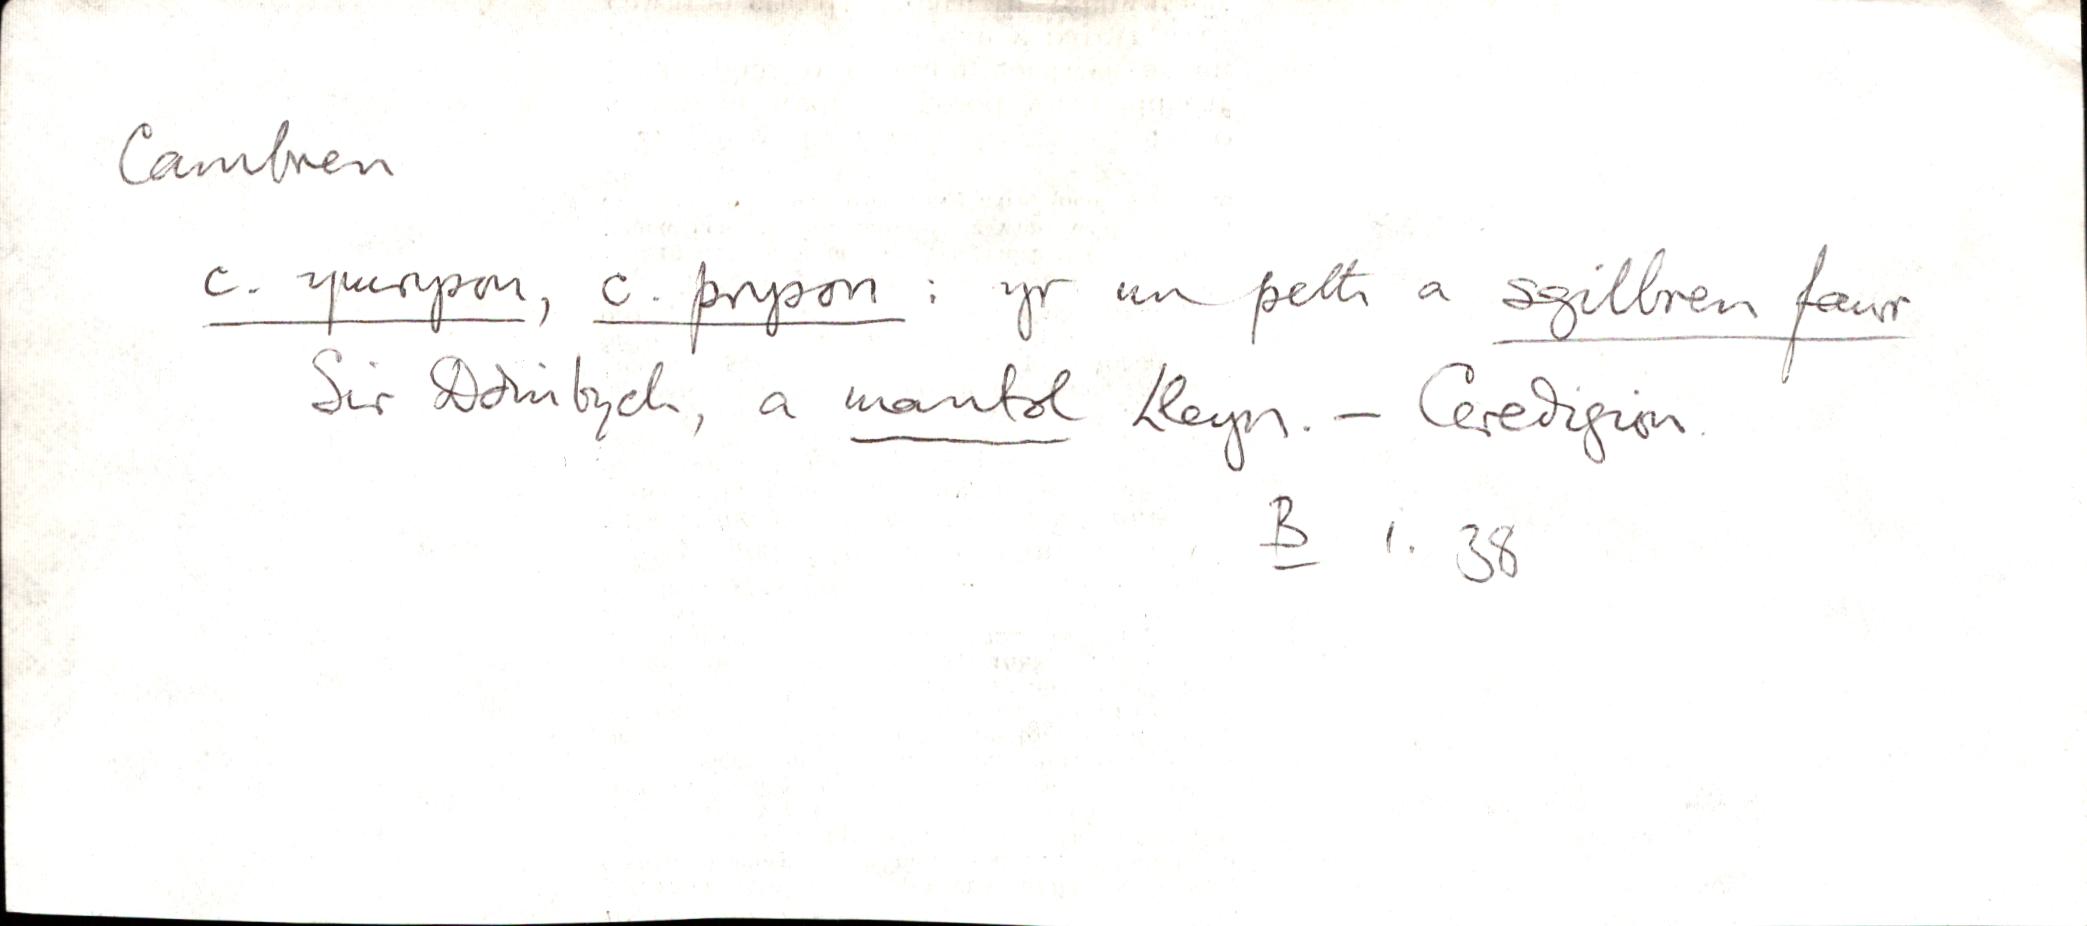 Cambren
c. ymrypon, c. prypon : yr un peth a sgilbren fawr
Sir Ddinbych, a mantol Lleyn. – Ceredigion.
B i. 38